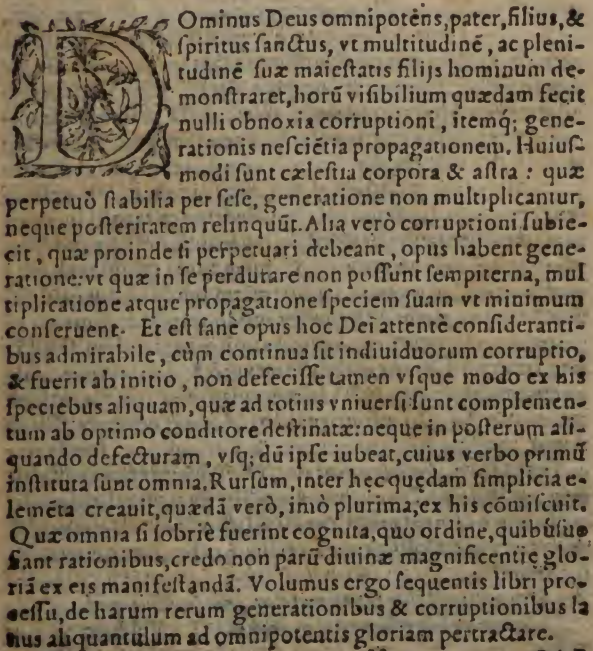 DOminus Deus omnipotẽns, pater, filius, &
ſpiritus ſanctus, vt multitudinẽ, ac pleni-
tudinẽ ſuæ maieſtatis filijs hominum de-
monſtraret, horũ viſibilium quædam fecit
nulli obnoxia corruptioni, itemq́; gene-
rationis neſciẽtia propagationem. Huiuſ-
modi ſunt cæleſtia corpora & aſtra: quæ
perpetuò ſtabilia per ſeſe, generatione non multiplicantur,
neque poſteritatem relinquũt. Alia verò corruptioni ſubie-
cit, quæ proinde ſi perpetuari debeant, opus habent gene-
ratione: vt quæ in ſe perdurare non poſſunt ſempiterna, mul
tiplicatione atque propagatione ſpeciem ſuam vt minimum
conſeruent. Et eſt ſanè opus hoc Dei attentè conſideranti-
bus admirabile, cùm continua ſit indiuiduorum corruptio,
& fuerit ab initio, non defeciſſe tamen vſque modo ex his
ſpeciebus aliquam, quæ ad totius vniuerſi ſunt complemen-
tum ab optimo conditore deſtinatæ: neque in poſterum ali-
quando defecturam, vſq; dũ ipſe iubeat, cuius verbo primũ
inſtituta ſunt omnia. Rurſum, inter hęc quędam ſimplicia e-
lemẽta creauit, quædã verò, imò plurima, ex his cõmiſcuit.
Quæ omnia ſi ſobriè fuerint cognita, quo ordine, quibuſue
fiant rationibus, credo non parũ diuinæ magnificentię glo-
riã ex eis manifeſtandã. Volumus ergo ſequentis libri pro-
ceſſu, de harum rerum generationibus & corruptionibus la
tius aliquantulum ad omnipotentis gloriam pertractare.